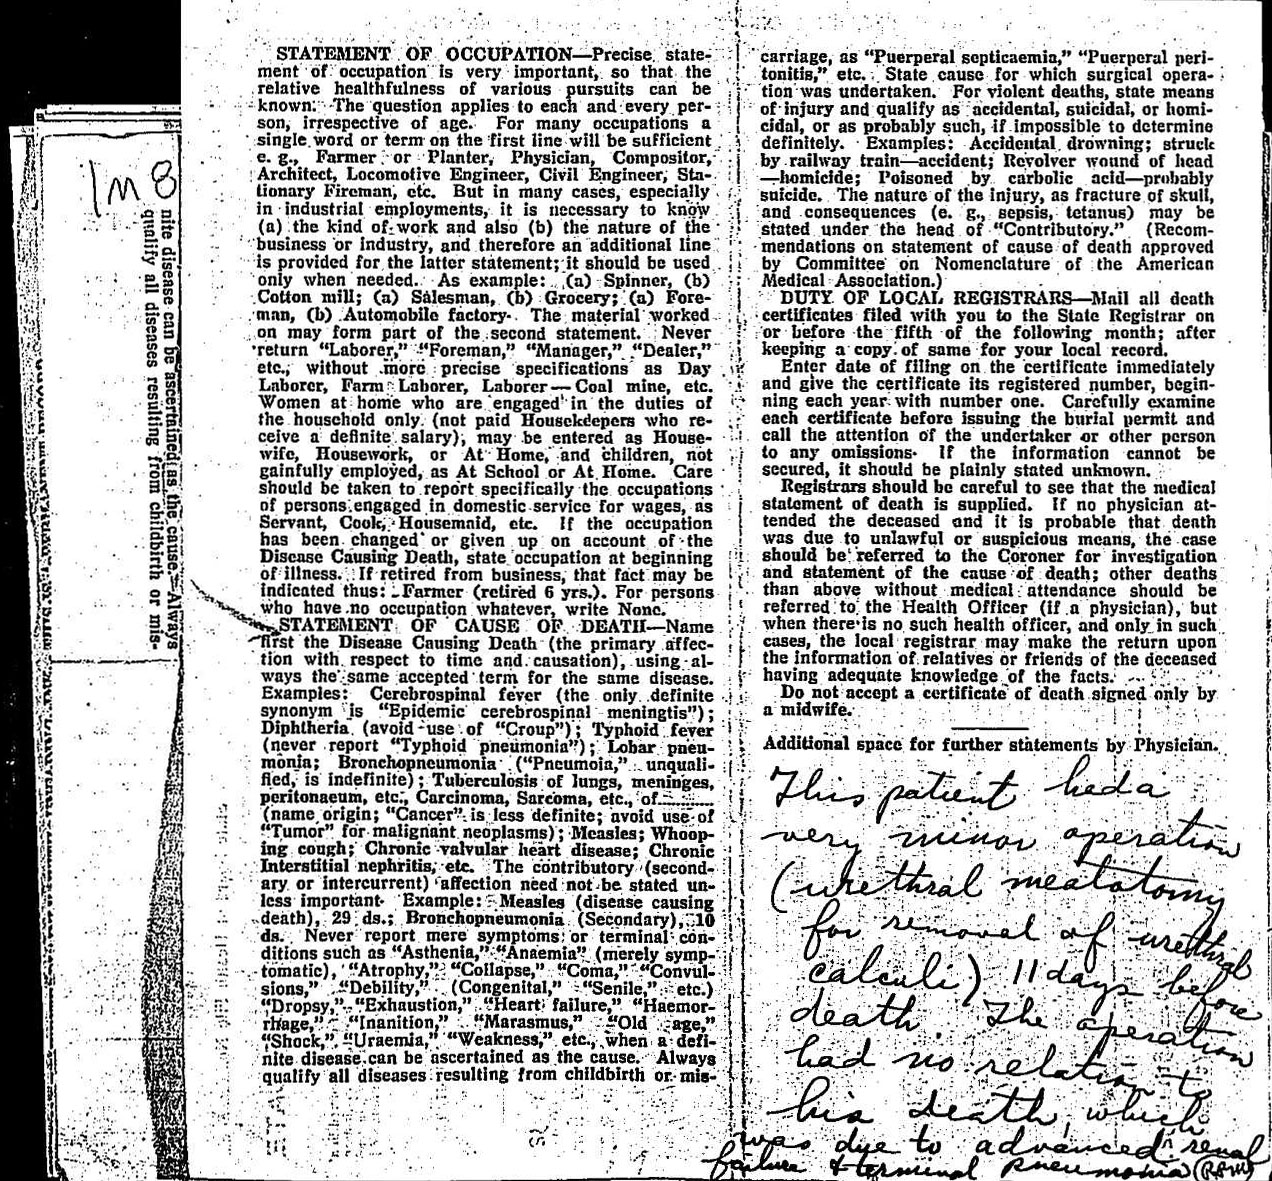 1m8
nite disease can be ascertained as the cause. Always
qualify all diseases resulting from childbirth or mis-
STATEMENT OF OCCUPATION—Precise state-
ment of occupation is very important, so that the
relative healthfulness of various pursuits can be
known. The question applies to each and every per-
son, irrespective of age. For many occupations a
single word or term on the first line will be sufficient
e. g., Farmer or Planter, Physician, Compositor,
Architect, Locomotive Engineer, Civil Engineer, Sta-
tionary Fireman, etc. But in many cases, especially
in industrial employments, it is necessary to know
(a) the kind of work and also (b) the nature of the
business or industry, and therefore an additional line
is provided for the latter statement; it should be used
only when needed. As example: (a) Spinner, (b)
Cotton mill; (a) Salesman, (b) Grocery; (a) Fore-
man, (b) Automobile factory. The material worked
on may form part of the second statement. Never
return "Laborer," "Foreman," "Manager," "Dealer,"
etc., without more precise specifications as Day
Laborer, Farm Laborer, Laborer—Coal mine, etc.
Women at home who are engaged in the duties of
the household only (not paid Housekdepers who re-
ceive a definite salary), may be entered as House-
wife, Housework, or At Home, and children, not
gainfully employed, as At School or At Home. Care
should be taken to report specifically the occupations
of persons engaged in domestic service for wages, as
Servant, Cook, Housemaid, etc. If the occupation
has been changed or given up on account of the
Disease Causing Death, state occupation at beginning
of illness. If retired from business, that fact may be
indicated thus: Farmer (retired 6 yrs.). For persons
who have no occupation whatever, write None.
STATEMENT OF CAUSE OF DEATH—Name
first the Disease Causing Death (the primary affec-
tion with respect to time and causation), using al-
ways the same accepted term for the same disease.
Examples: Cerebrospinal fever (the only definite
synonym is "Epidemic cerebrospinal meningtis");
Diphtheria (avoid use of "Croup"); Typhoid fever
(never report "Typhoid pneumonia"); Lobar pneu-
monia; Bronchopneumonia ("Pneumoia," unquali-
fied, is indefinite); Tuberculosis of lungs, meninges,
peritonaeum, etc., Carcinoma, Sarcoma, etc., of........
(name origin; "Cancer" is less definite; avoid use of
"Tumor" for malignant neoplasms); Measles; Whoop-
ing cough; Chronic valvular heart disease; Chronic
Interstitial nephritis, etc. The contributory (second-
ary or intercurrent) affection need not be stated un-
less important. Example: Measles (disease causing
death), 29 ds.; Bronchopneumonia (Secondary), 10
ds. Never report mere symptoms or terminal con-
ditions such as "Asthenia," "Anaemia" (merely symp-
tomatic), "Atrophy," "Collapse," "Coma," "Convul-
sions," "Debility," (Congenital," "Senile," etc.)
"Dropsy," "Exhaustion," "Heart failure," "Haemor-
rhage," "Inanition," "Marasmus," "Old age,"
"Shock," "Uraemia," "Weakness," etc., when a defi-
nite disease can be ascertained as the cause. Always
qualify all diseases resulting from childbirth or mis-
carriage, as "Puerperal septicaemia," "Puerperal peri-
tonitis," etc. State cause for which surgical opera-
tion was undertaken. For violent deaths, state means
of injury and qualify as accidental, suicidal, or homi-
cidal, or as probably such, if impossible to determine
definitely. Examples: Accidental drowning; struck
by railway train—accident; Revolver wound of head
—homicide; Poisoned by carbolic acid—probably
suicide. The nature of the injury, as fracture of skull,
and consequences (e. g., sepsis, tetanus) may be
stated under the head of "Contributory." (Recom-
mendations on statement of cause of death approved
by Committee on Nomenclature of the American
Medical Association.)
DUTY OF LOCAL REGISTRARS—Mail all death
certificates filed with you to the State Registrar on
or before the fifth of the following month; after
keeping a copy of same for your local record.
Enter date of filing on the certificate immediately
and give the certificate its registered number, begin-
ning each year with number one. Carefully examine
each certificate before issuing the burial permit and
call the attention of the undertaker or other person
to any omissions. If the information cannot be
secured, it should be plainly stated unknown.
Registrars should be careful to see that the medical
statement of death is supplied. If no physician at-
tended the deceased and it is probable that death
was due to unlawful or suspicious means, the case
should be referred to the Coroner for investigation
and statement of the cause of death; other deaths
than above without medical attendance should be
referred to the Health Officer (if a physician), but
when there is no such health officer, and only in such
cases, the local registrar may make the return upon
the information of relatives or friends of the deceased
having adequate knowledge of the facts.
Do not accept a certificate of death signed only by
a midwife.
Additional space for further statements by Physician.
This patient had a
very minor operation
(urethral meatotomy
for removal of urethral
calculi) 11 days before
death. The operation
had no relation to
his death, which
was due to advanced renal
failure & terminal pneumonia